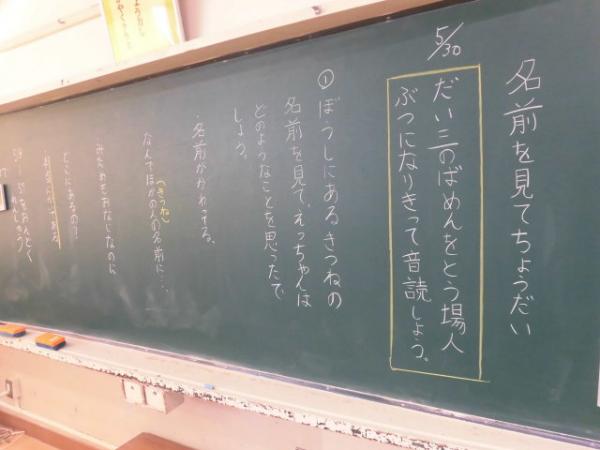 名前を見てちょうだい
5/30
だい三のばめんをとう場人
ぶつになりきって音読しよう。
① ぼうしにあるきつねの
名前を見て、えっちゃんは
どのようなことを思ったで
しょう。
・名前がかわってる。
(きつね)
なんでほかの人の名前に・・・
みためもおなじなのに
どこにあるの?